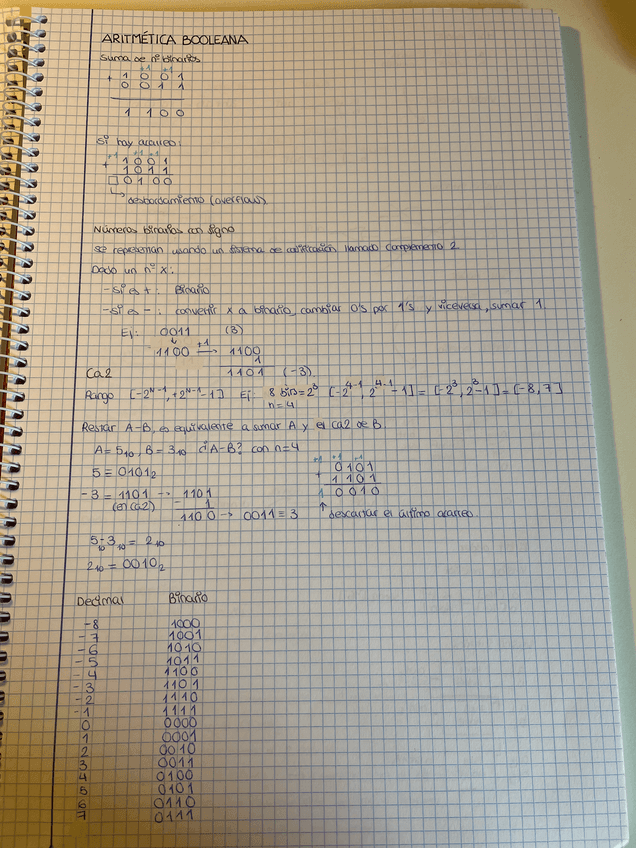 ARITMÉTICA BOOLEANA
Suma de nº binarios
+1 +1
+ 1 0 0 1
0 0 1 1
1 1 0 0
Si hay acarreo:
+1 +1 +1
+ 1 0 0 1
1 0 1 1
□ 0 1 0 0
↳ desbordamiento (overflow)
Números binarios con signo
Se representan usando un sistema de codificación llamado complemento 2.
Dado un nº x:
- Si es + : Binario
- Si es - : convertir x a binario, cambiar 0's por 1's y viceversa, sumar 1.
Ej: 0011 (3)
1100 +1→ 1100
1
Ca2 1101 (-3)
Rango [-2^N-1, +2^N-1 -1] Ej: 8 bin = 2^3 [-2^4-1, 2^4-1 -1] = [-2^3, 2^3 -1] = [-8, 7]
n=4
Restar A-B, es equivalente a sumar A y el ca2 de B
A = 5₁₀, B = 3₁₀ ¿A-B? con n=4
5 = 0101₂
-3 = 1101 → 1101
(en ca2) - 1
1100 → 0011 = 3
+1 +1 +1
+ 0101
1101
1 0010
↑ descartar el último acarreo.
5₁₀-3₁₀ = 2₁₀
2₁₀ = 0010₂
Decimal Binario
-8 1000
-7 1001
-6 1010
-5 1011
-4 1100
-3 1101
-2 1110
-1 1111
0 0000
1 0001
2 0010
3 0011
4 0100
5 0101
6 0110
7 0111